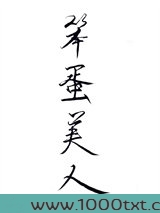 笨蛋美人
www.1000txt.com